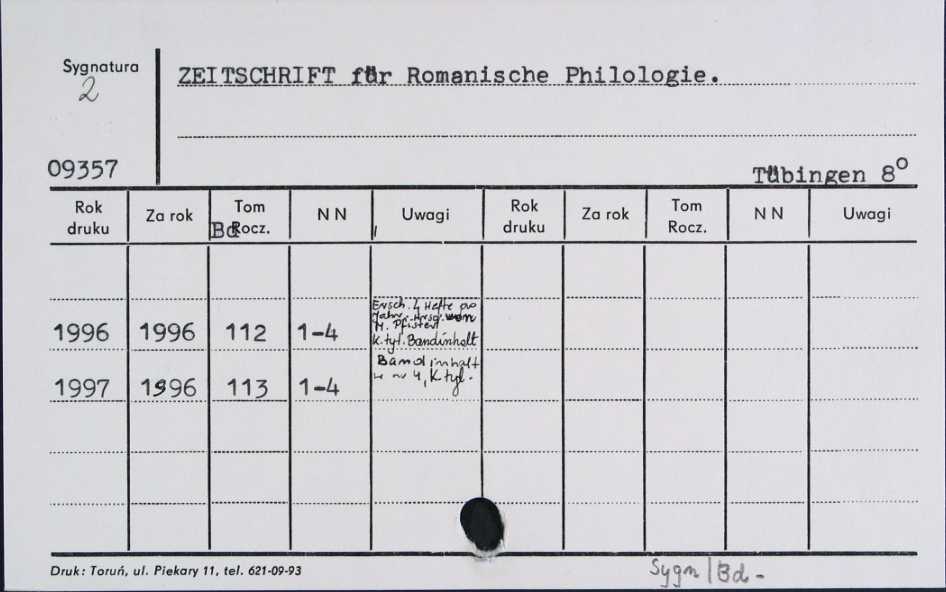 Sygnatura
2
ZEITSCHRIFT für Romanische Philologie.
09357
Tübingen 8°
Rok druku Za rok Tom Rocz. Bd N N Uwagi Rok druku Za rok Tom Rocz. N N Uwagi
1996 1996 112 1-4 Ersch. 4 Hefte pro
Jahr. Hrsg. von
M. Pfister
K. tyt. Bandinhalt
1997 1996 113 1-4 Bandinhalt
w nr 4, K. tyt.
Druk: Toruń, ul. Piekary 11, tel. 621-09-93
Sygn/Bd-